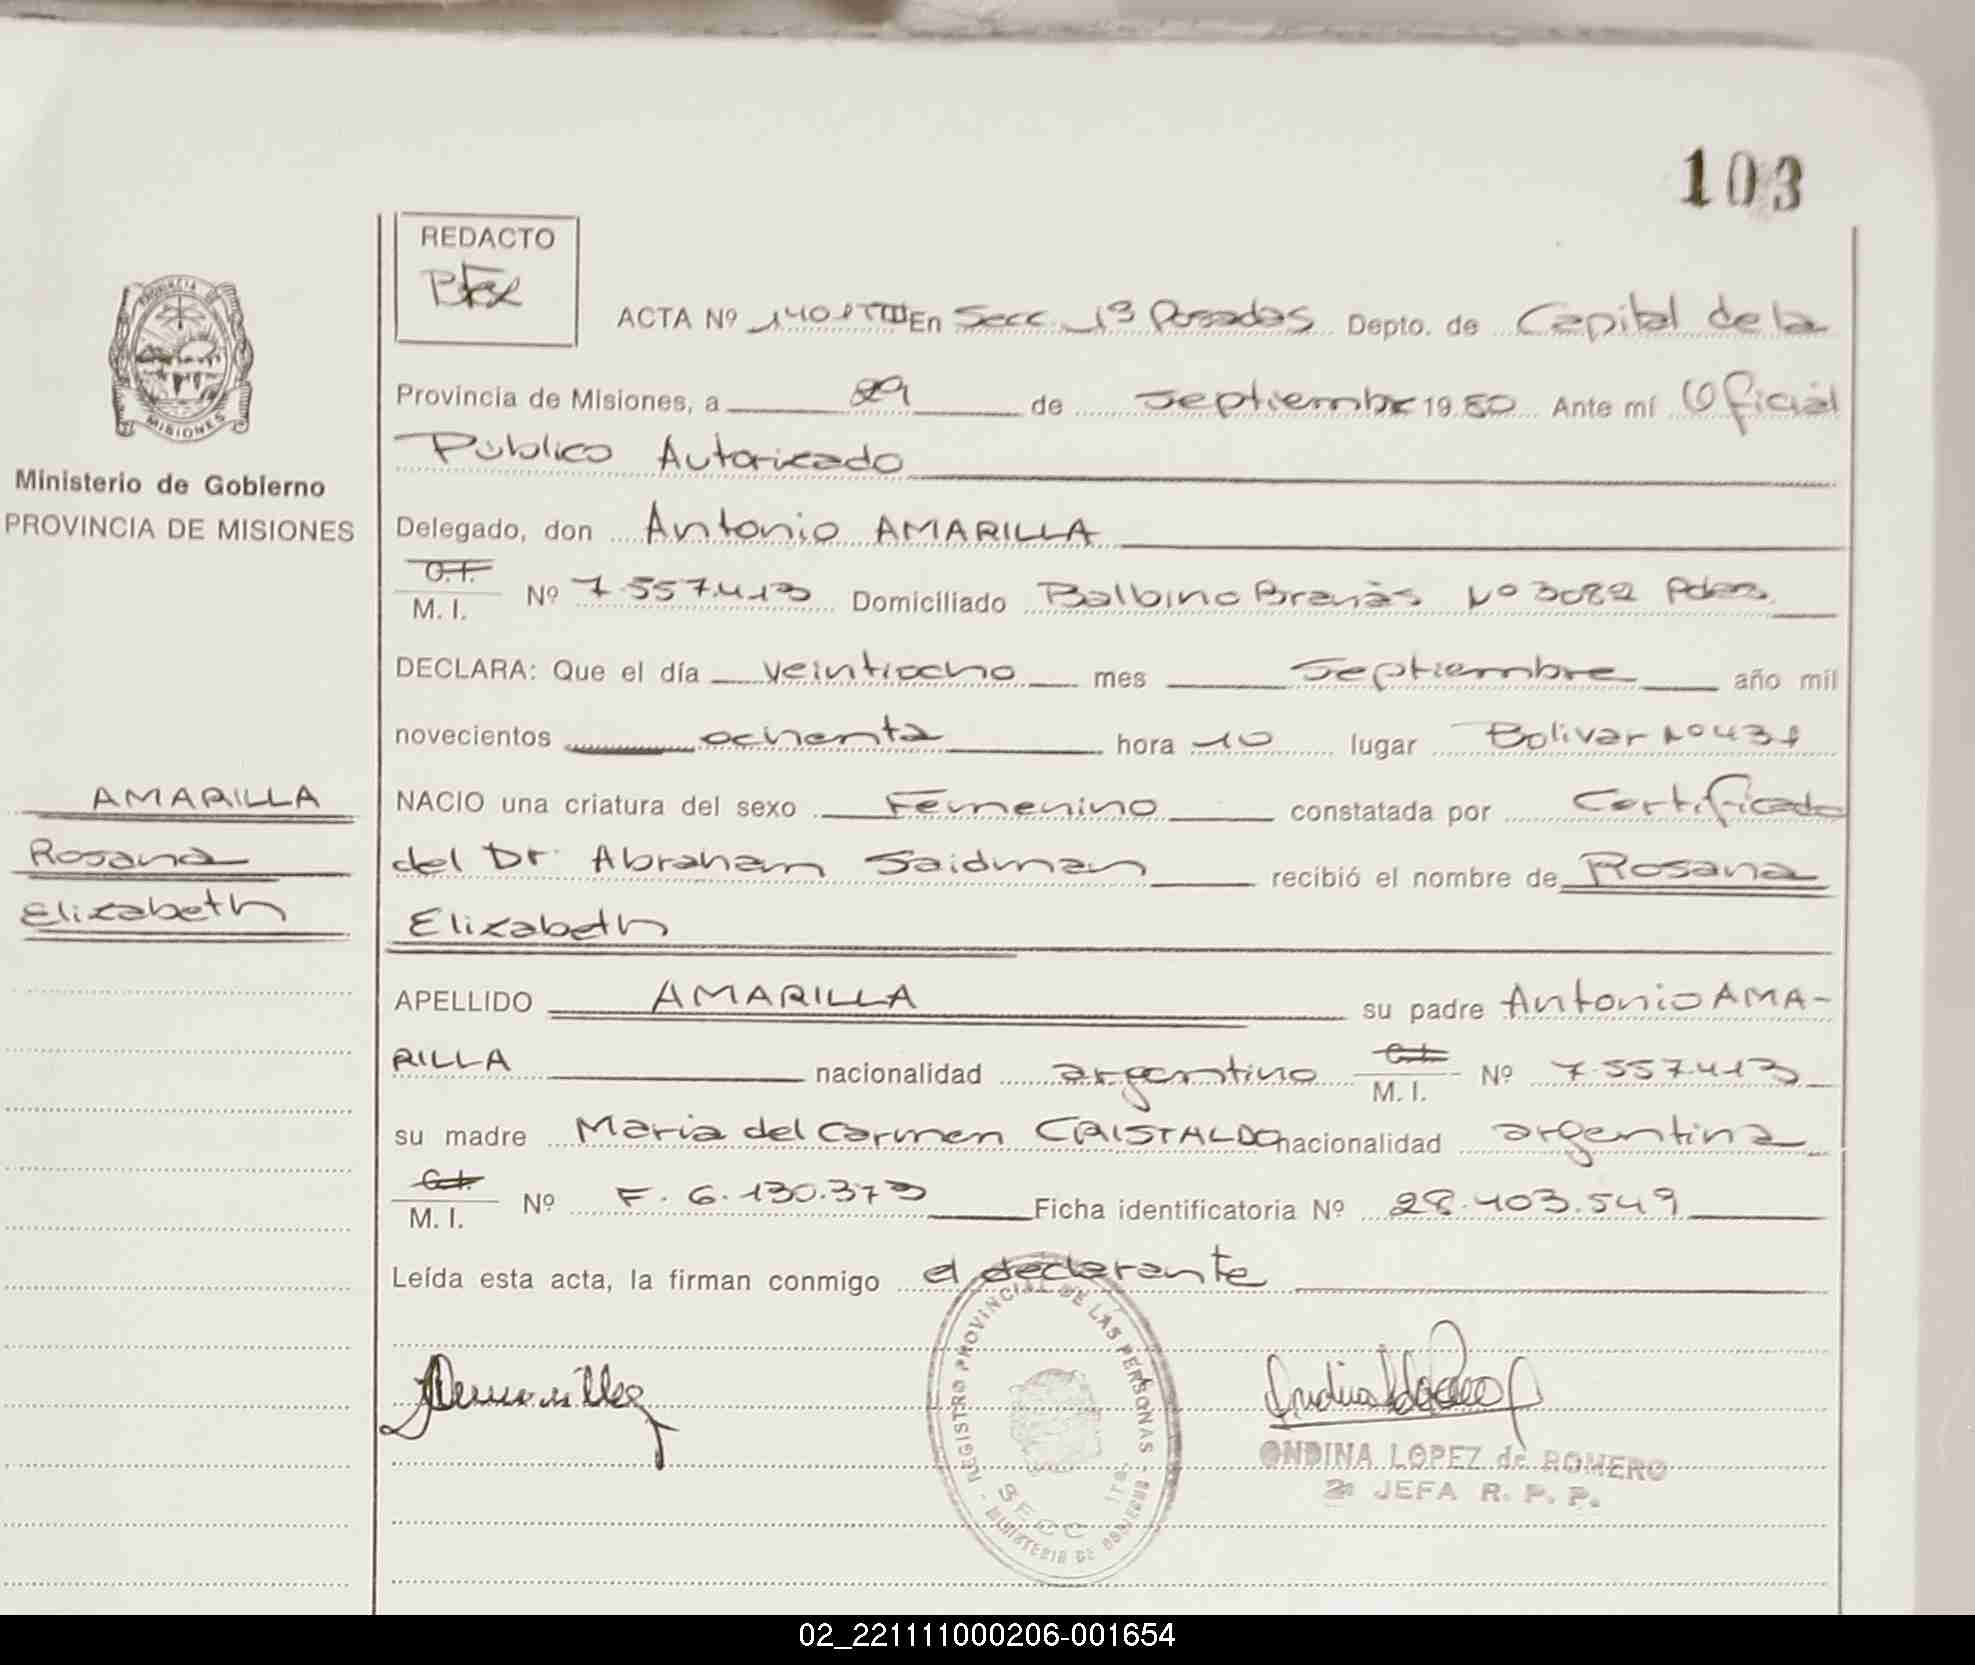 103
REDACTO
PROVINCIA DE
MISIONES
ACTA Nº 1401 TIII En Secc. 1ª Posadas Depto. de Capital de la
Provincia de Misiones, a 29 de Septiembre 1980 Ante mí Oficial
Público Autorizado
Ministerio de Gobierno
PROVINCIA DE MISIONES
Delegado, don Antonio AMARILLA
C.I. M. I. Nº 7.557.413 Domiciliado Balbino Brañas Nº 3082 Pdas.
DECLARA: Que el día veintiocho mes Septiembre año mil
novecientos ochenta hora 10 lugar Bolivar Nº 431
AMARILLA
Rosana
Elizabeth
NACIO una criatura del sexo Femenino constatada por Certificado
del Dr. Abraham Saidman recibió el nombre de Rosana
Elizabeth
APELLIDO AMARILLA su padre Antonio AMA-
RILLA nacionalidad argentino C.I. M. I. Nº 7.557.413
su madre Maria del Carmen CRISTALDO nacionalidad argentina
C.I. M. I. Nº F. 6.130.373 Ficha identificatoria Nº 28.403.549
Leída esta acta, la firman conmigo el declarante
Amarilla
REGISTRO PROVINCIAL DE LAS PERSONAS - MINISTERIO DE GOBIERNO -
SECC 1ra.
ONDINA LOPEZ de ROMERO
2ª JEFA R. P. P.
02_221111000206-001654